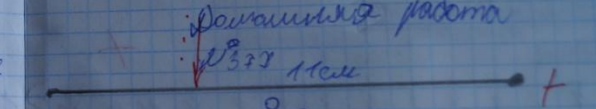 Домашняя работа
№378
11см